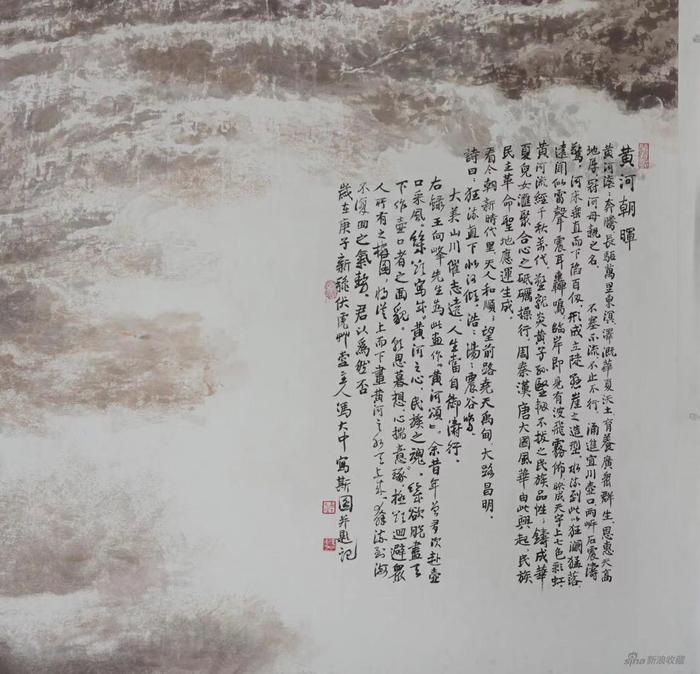 黃河朝暉
黃河滾滾奔騰長驅萬里東濱澤溉華夏沃土育養廣袤群生恩惠天高
地厚冠河母親之名 不塞不流不止不行涌進宜川壺口兩岸石震濤
驚河床垂直而下陷百仞形成立陡懸崖之造型水流到此以狂瀾猛落
遠聞似雷聲震耳轟鳴臨岸即見有波飛霧佈映成天宇上七色彩虹
黃河流經千秋萬代塑就炎黃子孫堅韌不拔之民族品性鑄成華
夏兒女滙聚合心之砥礪操行周秦漢唐大國風華由此興起民族
民主革命聖地應運生成
看今朝新時代里天人和順望前路堯天禹甸大路昌明
詩曰狂流直下水汹傾浩浩湯湯震谷鳴
大美山川催志遠人生當自御濤行
右錄王向峰先生為此畫作黃河頌余昔年曾有次赴壺
口采風餘欲寫出黃河之心民族之魂餘欲脫盡天
下作壺口者之面貌思慕想心揣意琢極欲迴避眾
人所有之構圖自上而下畫黃河之水天上來流到海
不復回之氣勢君以為然否
歲在庚子新禄伏虎艸堂主人馮大中寫斯圖并題記
sina 新浪收藏